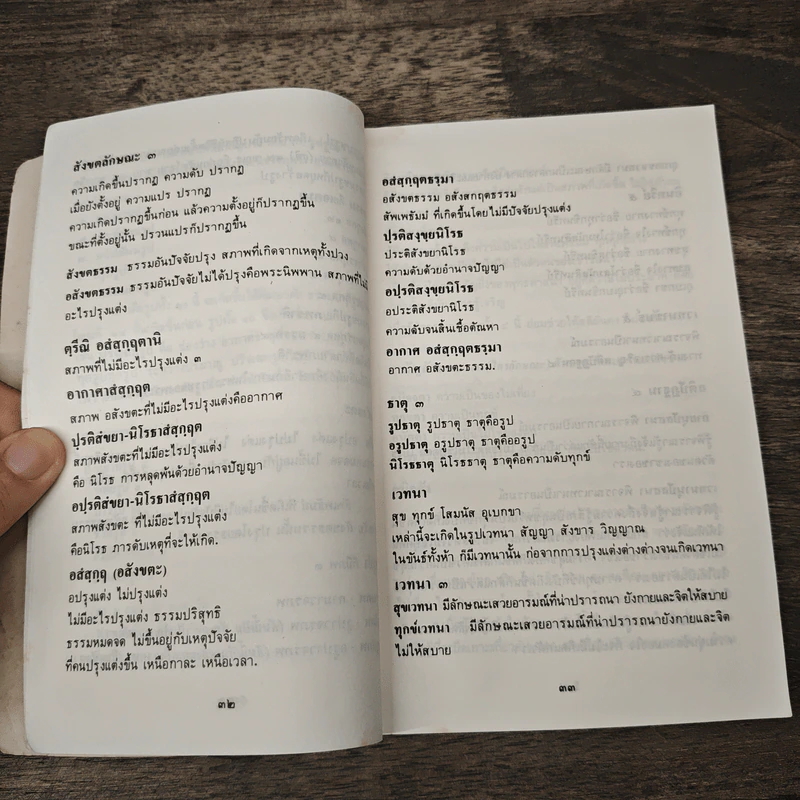 สังขตลักษณะ ๓
ความเกิดขึ้นปรากฏ ความดับ ปรากฏ
เมื่อยังตั้งอยู่ ความแปร ปรากฏ
ความเกิดปรากฏขึ้นก่อน แล้วความตั้งอยู่ก็ปรากฏขึ้น
ขณะที่ตั้งอยู่นั้น ปรวนแปรก็ปรากฏขึ้น
สังขตธรรม ธรรมอันปัจจัยปรุง สภาพที่เกิดจากเหตุทั้งปวง
อสังขตธรรม ธรรมอันปัจจัยไม่ได้ปรุงคือพระนิพพาน สภาพที่ไม่มี
อะไรปรุงแต่ง
ตฺรีณิ อสํสฺกฺฤตานิ
สภาพที่ไม่มีอะไรปรุงแต่ง ๓
อากาศาสํสฺกฺฤต
สภาพ อสังขตะที่ไม่มีอะไรปรุงแต่งคืออากาศ
ปฺรติสํขยา-นิโรธาสํสฺกฺฤต
สภาพสังขตะที่ไม่มีอะไรปรุงแต่ง
คือ นิโรธ การหลุดพ้นด้วยอำนาจปัญญา
อปฺรติสํขยา-นิโรธาสํสฺกฺฤต
สภาพสังขตะ ที่ไม่มีอะไรปรุงแต่ง
คือนิโรธ ภารดับเหตุที่จะให้เกิด.
อสํสฺกฺฤ (อสังขตะ)
อปรุงแต่ง ไม่ปรุงแต่ง
ไม่มีอะไรปรุงแต่ง ธรรมปริสุทธิ
ธรรมหมดจด ไม่ขึ้นอยู่กับเหตุปัจจัย
ที่คนปรุงแต่งขึ้น เหนือกาละ เหนือเวลา.
๓๒
อสํสฺกฺฤตธรฺมา
อสังขตธรรม อสังสกฤตธรรม
สัพเพธัมมํ ที่เกิดขึ้นโดยไม่มีปัจจัยปรุงแต่ง
ปฺรติสงฺขฺยนิโรธ
ประติสังขยานิโรธ
ความดับด้วยอำนาจปัญญา
อปฺรติสงฺขฺยนิโรธ
อประติสังขยานิโรธ
ความดับจนสิ้นเชื้อตัณหา
อากาศ อสํสฺกฺฤตธรฺมา
อากาศ อสังขตะธรรม.
ธาตุ ๓
รูปธาตุ รูปธาตุ ธาตุคือรูป
อรูปธาตุ อรูปธาตุ ธาตุคืออรูป
นิโรธธาตุ นิโรธธาตุ ธาตุคือความดับทุกข์
เวทนา
สุข ทุกข์ โสมนัส อุเบกขา
เหล่านี้จะเกิดในรูปเวทนา สัญญา สังขาร วิญญาณ
ในขันธ์ทั้งห้า ก็มีเวทนานั้น ก่อจากการปรุงแต่งต่างต่างจนเกิดเวทนา
เวทนา ๓
สุขเวทนา มีลักษณะเสวยอารมณ์ที่น่าปรารถนา ยังกายและจิตให้สบาย
ทุกข์เวทนา มีลักษณะเสวยอารมณ์ที่น่าปรารถนายังกายและจิต
ไม่ให้สบาย
๓๓